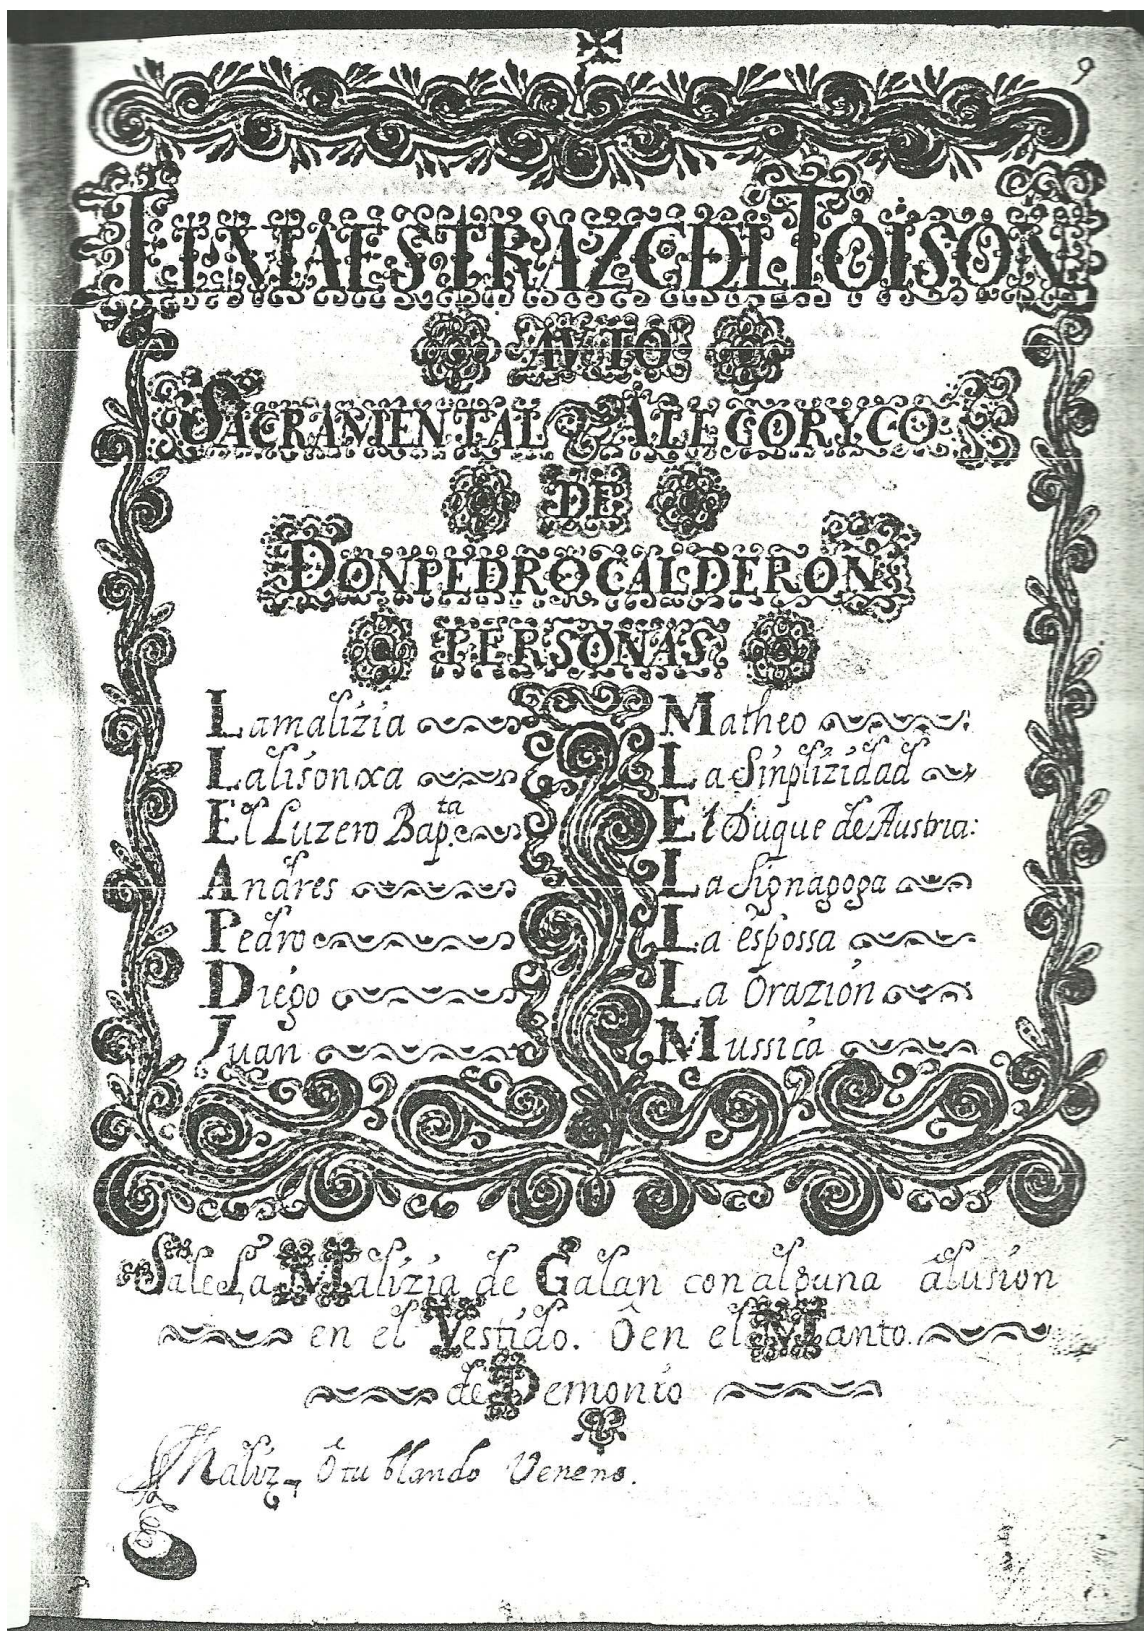 9
EL MAESTRAZGO DEL TOISON
AVTO
SACRAMENTAL Y ALEGORYCO
DE
DON PEDRO CALDERON
PERSONAS
La malizia
La lisonxa
El Luzero Bap.ta
Andres
Pedro
Diego
Juan
Matheo
La Sinplizidad
El Duque de Austria:
La Signagoga
La espossa
La Orazion
Mussica
Sale La Malizia de Galan con alguna alusion
en el Vestido. Ô en el Manto.
de Demonio
Maliz. Ô tu blando Veneno.